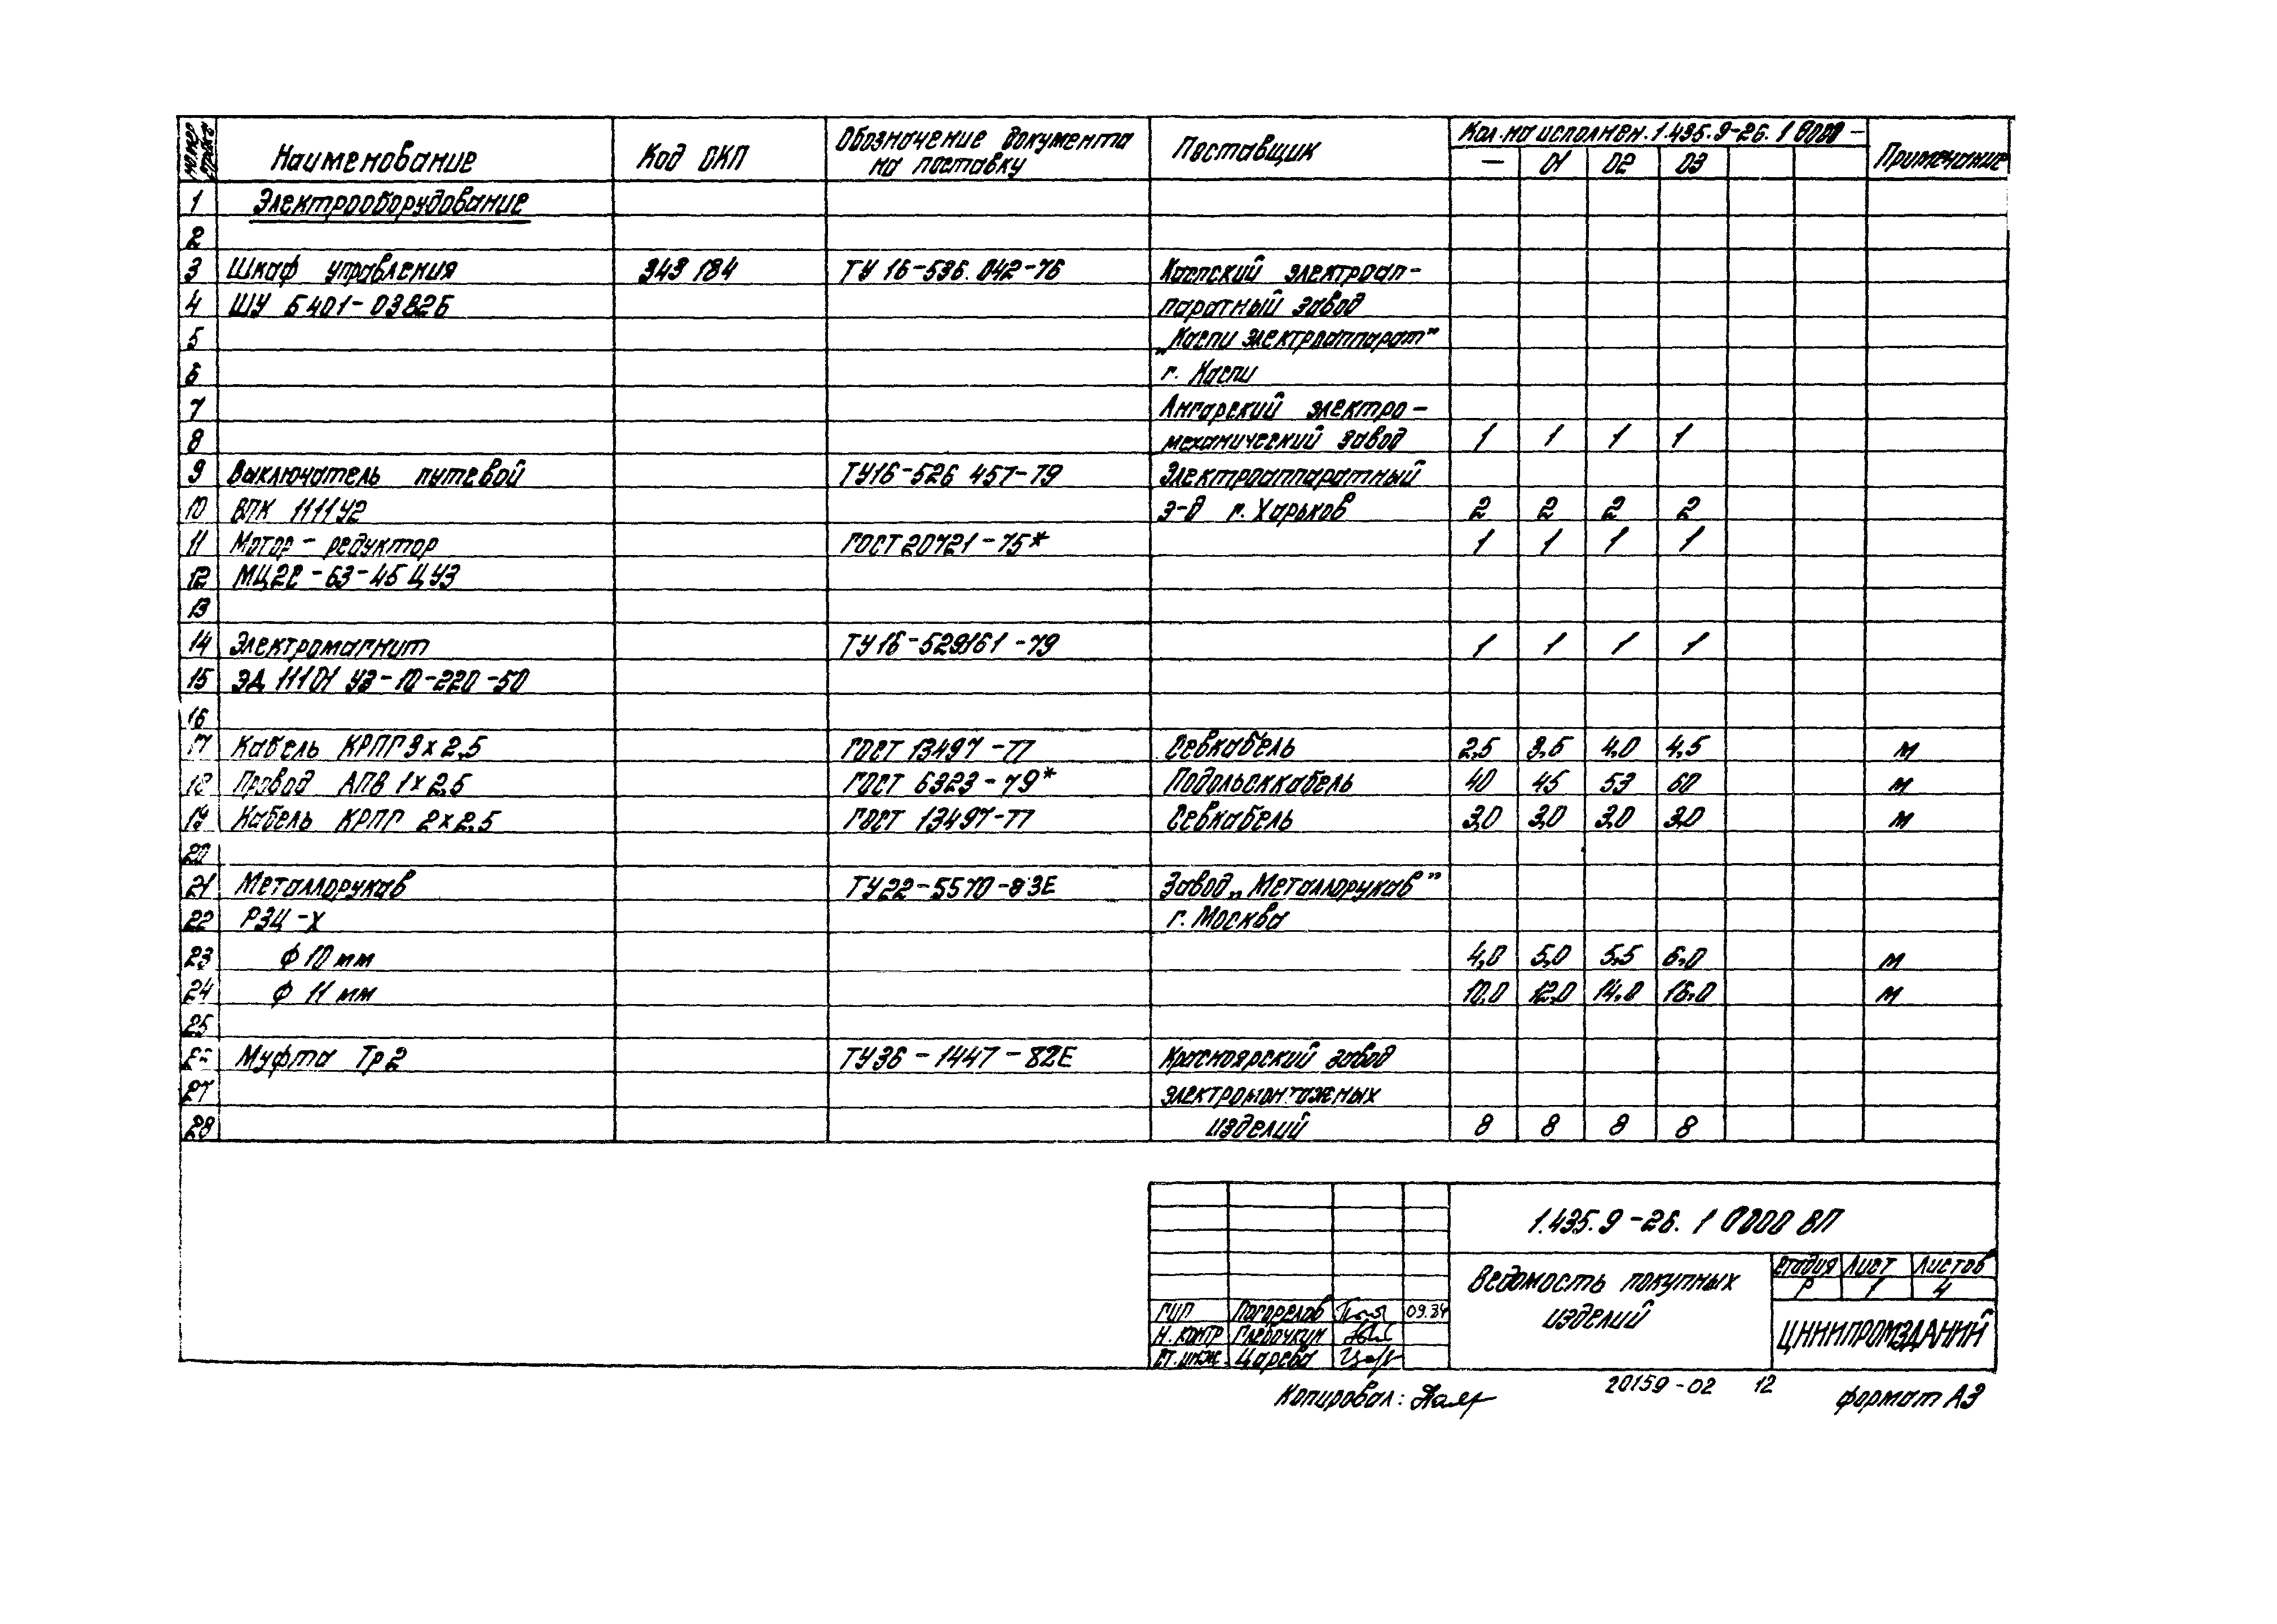 Номер строки Наименование Код ОКП Обозначение документа на поставку Поставщик Кол. на исполнен. 1.435.9-26. 1 0000 - Примечание
— 01 02 03
1 Электрооборудование
2
3 Шкаф управления 343 184 ТУ 16-536. 042-76 Каспский электроап-
4 ШУ 5401-03В2Б паратный завод
5 „Каспи электроаппарат"
6 г. Каспи
7 Ангарский электро-
8 механический завод 1 1 1 1
9 Выключатель путевой ТУ16-526 457-79 Электроаппаратный
10 ВПК 1111У2 з-д г. Харьков 2 2 2 2
11 Мотор-редуктор ГОСТ 20721-75* 1 1 1 1
12 МЦ2С-63-45 ЦУ3
13
14 Электромагнит ТУ16-529161-79 1 1 1 1
15 ЭД 11101 У3-10-220-50
16
17 Кабель КРПГ 3х2,5 ГОСТ 13497-77 Севкабель 2,5 3,5 4,0 4,5 м
18 Провод АПВ 1х2,5 ГОСТ 6323-79* Подольсккабель 40 45 53 60 м
19 Кабель КРПГ 2х2,5 ГОСТ 13497-77 Севкабель 3,0 3,0 3,0 3,0 м
20
21 Металлорукав ТУ22-5570-83Е Завод „Металлорукав"
22 РЗЦ-Х г. Москва
23 Ф 10 мм 4,0 5,0 5,5 6,0 м
24 Ф 11 мм 10,0 12,0 14,0 16,0 м
25
26 Муфта Тр2 ТУ36-1447-82Е Красноярский завод
27 электромонтажных
28 изделий 8 8 8 8
1.435.9-26. 1 0000 ВП
Ведомость покупных изделий
Стадия Лист Листов
Р 1 4
ГИП Погорелов 09.84
Н. контр Глебочкин
Ст. инж. Царева
ЦНИИПРОМЗДАНИЙ
Копировал:
20159-02 12
формат А3